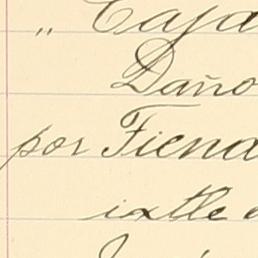 " Caja
Daño
por Fiend
ixtle